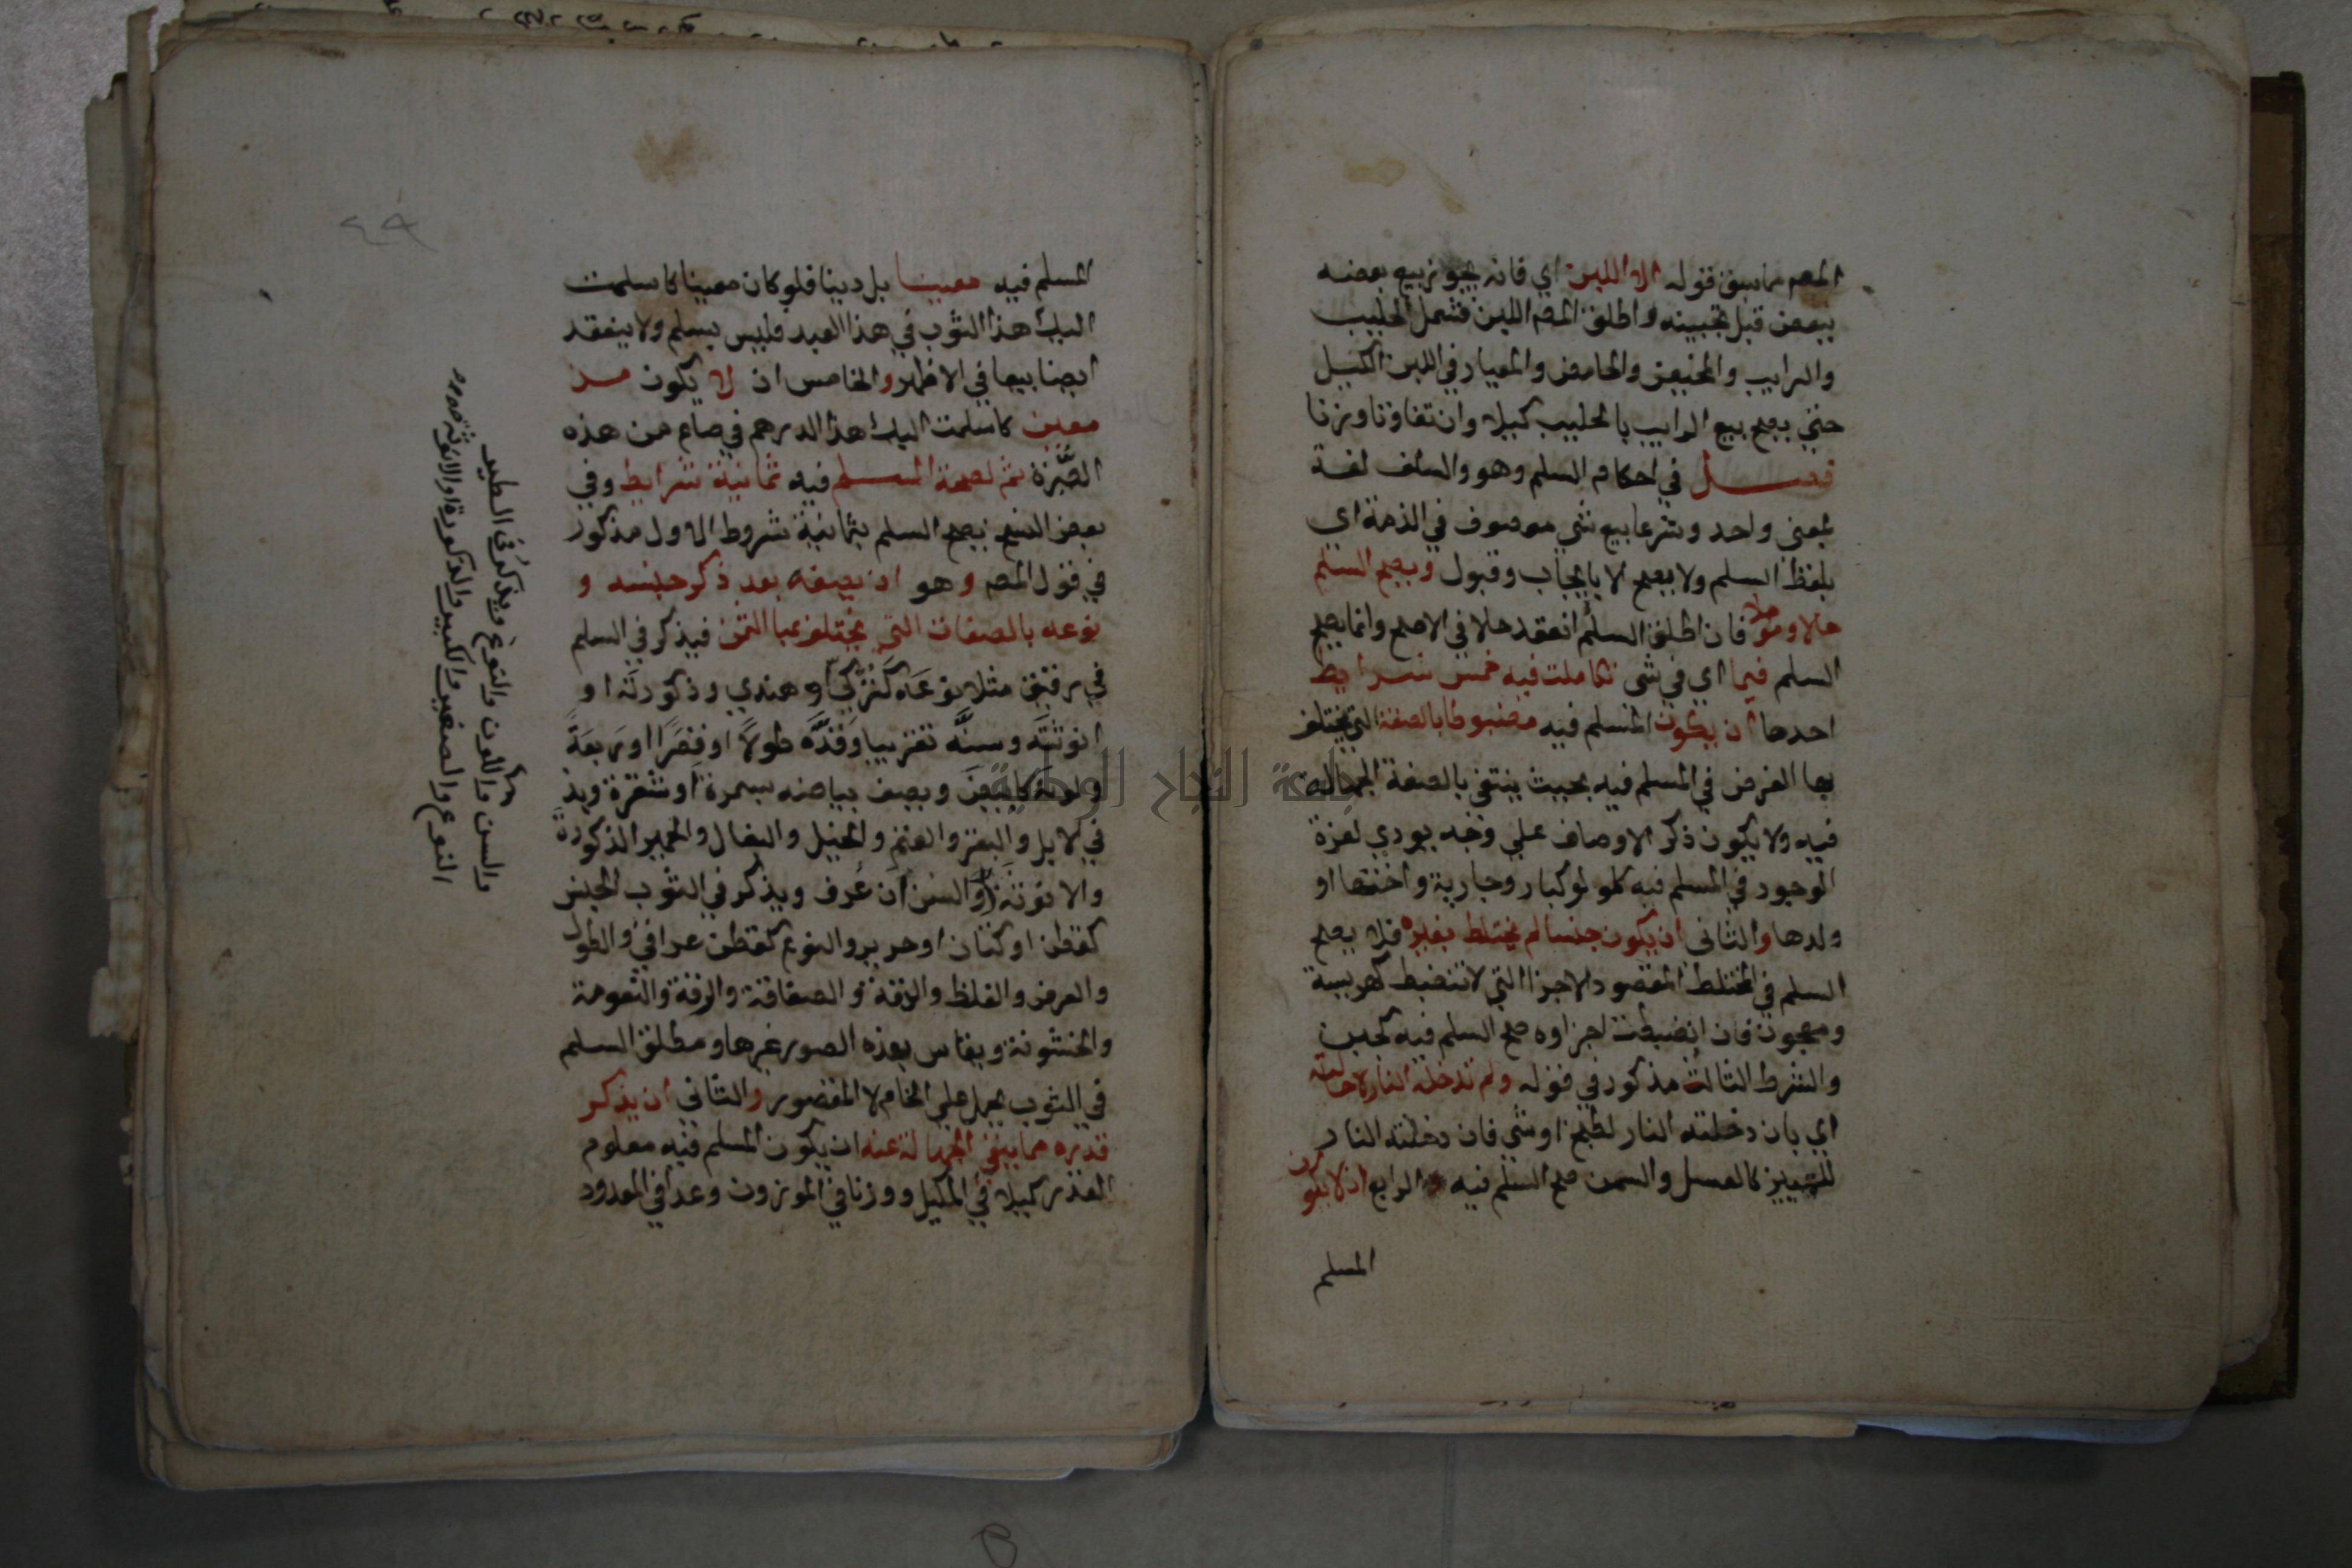 المصم مما سبق قوله الا اللبن اي فانه يجوز بيع بعضه
ببعض قبل تجبينه واطلق المصم اللبن فشمل الحليب
والرايب والمخيض والحامض والمعيار في اللبن الكيل
حتي يصح بيع الرايب بالحليب كيلا وان تفاوتا وزنا
فصل في احكام السلم وهو والسلف لغة
بمعني واحد وشرعا بيع شي موصوف في الذمة اي
بلفظ السلم ولا يصح الا بايجاب وقبول ويصح السلم
حالا ومؤجلا فان اطلق السلم انعقد حالا في الاصح وانما يصح
السلم فيما اي في شي تكاملت فيه خمس شرايط
احدها ان يكون المسلم فيه مضبوطا بالصفة التي يختلف
بها الغرض في المسلم فيه بحيث ينتفي بالصفة الجهالة
فيه ولا يكون ذكر الاوصاف علي وجه يودي لعزة
الوجود في المسلم فيه كلولو كبار وجارية واختها او
ولدها والثاني ان يكون جنسا لم يختلط بغيره فلا يصح
السلم في المختلط المقصود الاجزا التي لا تنضبط كهريسة
ومعجون فان انضبطت اجزاوه صح السلم فيه كجبن
والشرط الثالث مذكور في قوله ولم تدخله النار لاحالته
اي بان دخلته النار لطبخ او شي فان دخلته النار
للتمييز كالعسل والسمن صح السلم فيه و الرابع ان لا يكون
المسلم
٤٩
المسلم فيه معينا بل دينا فلو كان معينا كاسلمت
اليك هذا الثوب في هذا العبد فليس بسلم ولا ينعقد
ايضا بيعا في الاظهر والخامس ان لا يكون من
معين كاسلمت اليك هذا الدرهم في صاع من هذه
الصُّبْرَة ثم لصحة المسلم فيه ثمانية شرايط وفي
بعض النسخ يصح السلم بثمانية شروط الاول مذكور
في قول المصم وهو ان يصفه بعد ذكر جنسه و
نوعه بالصفات التي يختلف بها الثمن فيذكر في السلم
في رقيق مثلا نوعَه كتُرْكي او هندي وذكورتَه او
انوثتَه وسنَّه تقريبا وقَدَّه طولًا او قِصَرًا او رَبعَةً
ولونَه كابيضَ ويصف بياضه بسمرة او شقرة ويذ
في الابل والبقر والغنم والخيل والبغال والحمير الذكورة
والانوثة والسن ان عُرف ويذكر في الثوب الجنس
كقطن او كتان او حرير والنوع كقطن عراقي والطول
والعرض والغلظ والدقة و الصفاقة والرقة والنعومة
والخشونة ويقاس بهذه الصور غيرها ومطلق السلم
في الثوب يحمل علي الخام لا المقصور والثاني ان يذكر
قدره مما ينفي الجهالة عنه ان يكون المسلم فيه معلوم
القدر كيلا في المكيل ووزنا في الموزون وعدا في المعدود
والسن واللون والنوع ويذكر في الطير
النوع والصغير والكبير والذكورة او الانوثة
جامعة النجاح الوطنية